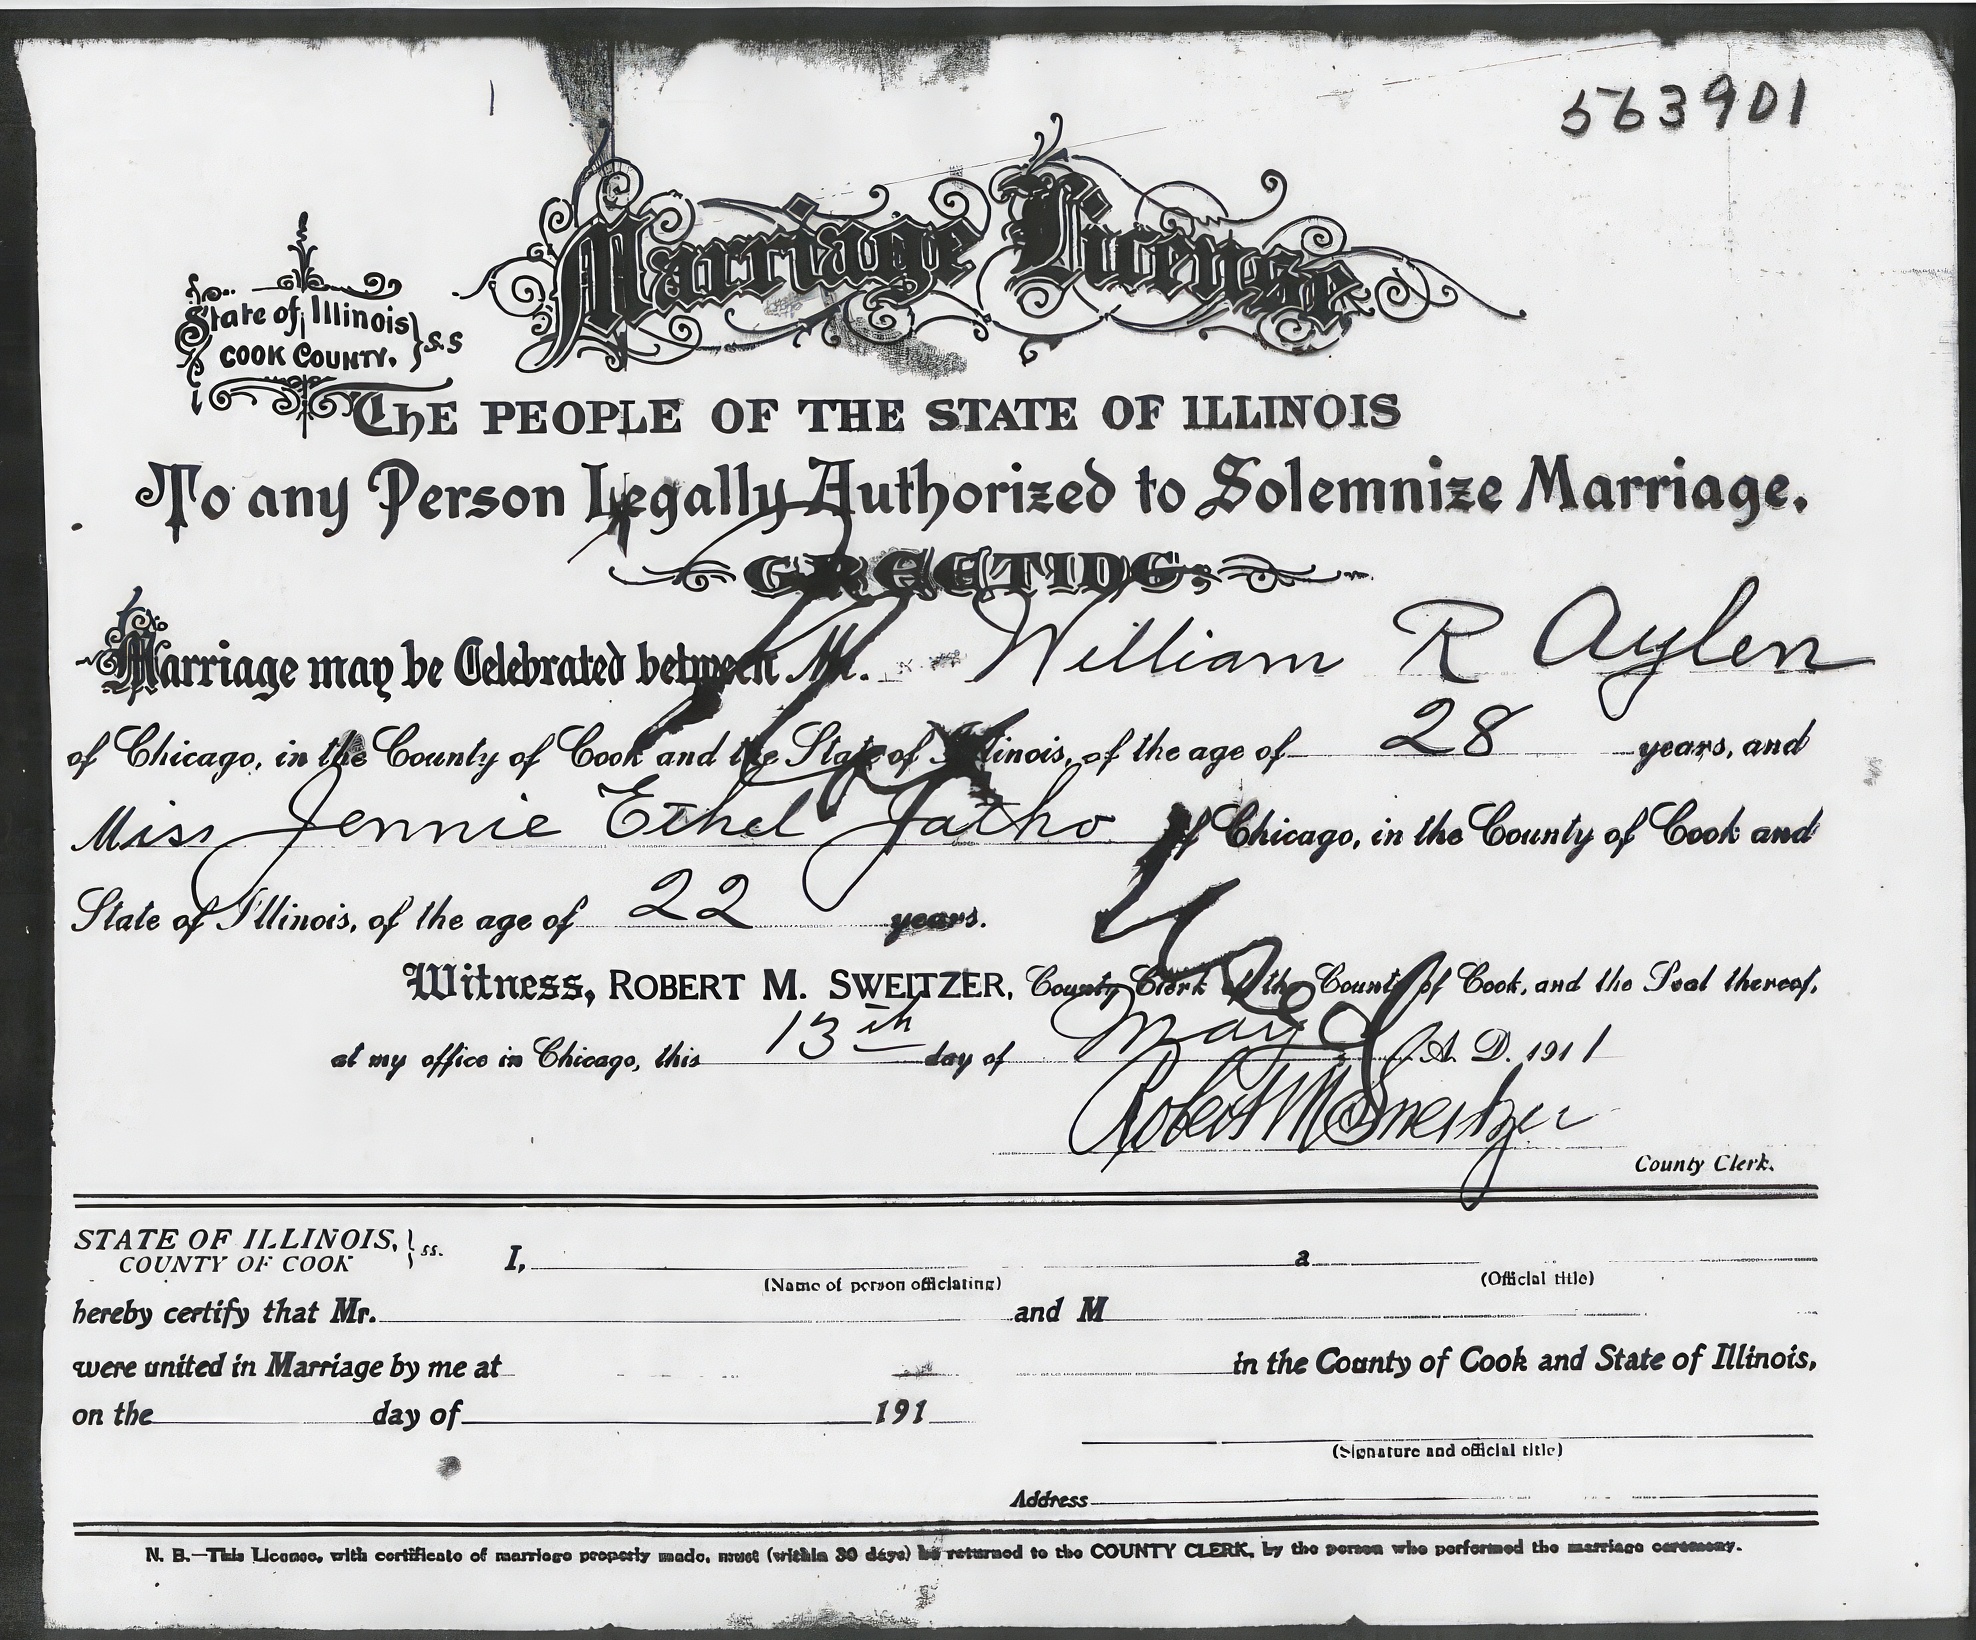 563901
Marriage License
State of Illinois } S.S
COOK COUNTY.
THE PEOPLE OF THE STATE OF ILLINOIS
To any Person Legally Authorized to Solemnize Marriage.
GREETING:
Marriage may be Celebrated between Mr. William R Aylen
of Chicago, in the County of Cook and the State of Illinois, of the age of 28 years, and
Miss Jennie Ethel Jatho of Chicago, in the County of Cook and
State of Illinois, of the age of 22 years.
Witness, ROBERT M. SWEITZER, County Clerk of the County of Cook, and the Seal thereof,
at my office in Chicago, this 13th day of May A. D. 1911
Robert M Sweitzer
County Clerk.
STATE OF ILLINOIS, } ss.
COUNTY OF COOK
I, a
(Name of person officiating) (Official title)
hereby certify that Mr. and M
were united in Marriage by me at in the County of Cook and State of Illinois,
on the day of 191
(Signature and official title)
Address
N. B.—This License, with certificate of marriage properly made, must (within 30 days) be returned to the COUNTY CLERK, by the person who performed the marriage ceremony.